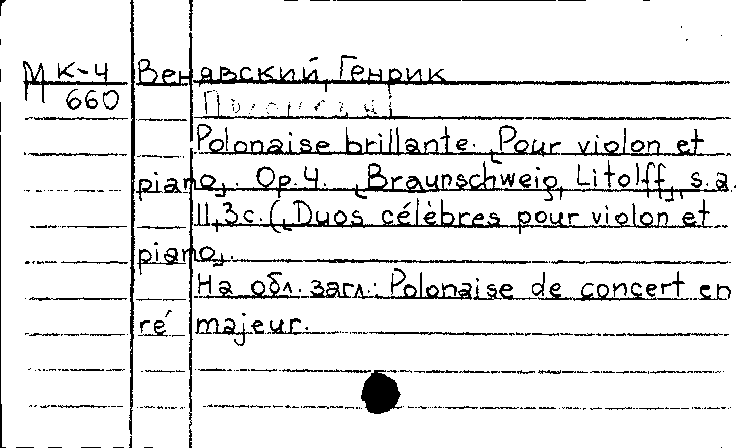 М К-4 Венявский, Генрик
660
Polonaise brillante. [Pour violon et
piano]. Op. 4. [Braunschweig, Litolff], s.a.
11,3 с. ([Duos célèbres pour violon et
piano].
На обл. загл.: Polonaise de concert en
ré majeur.